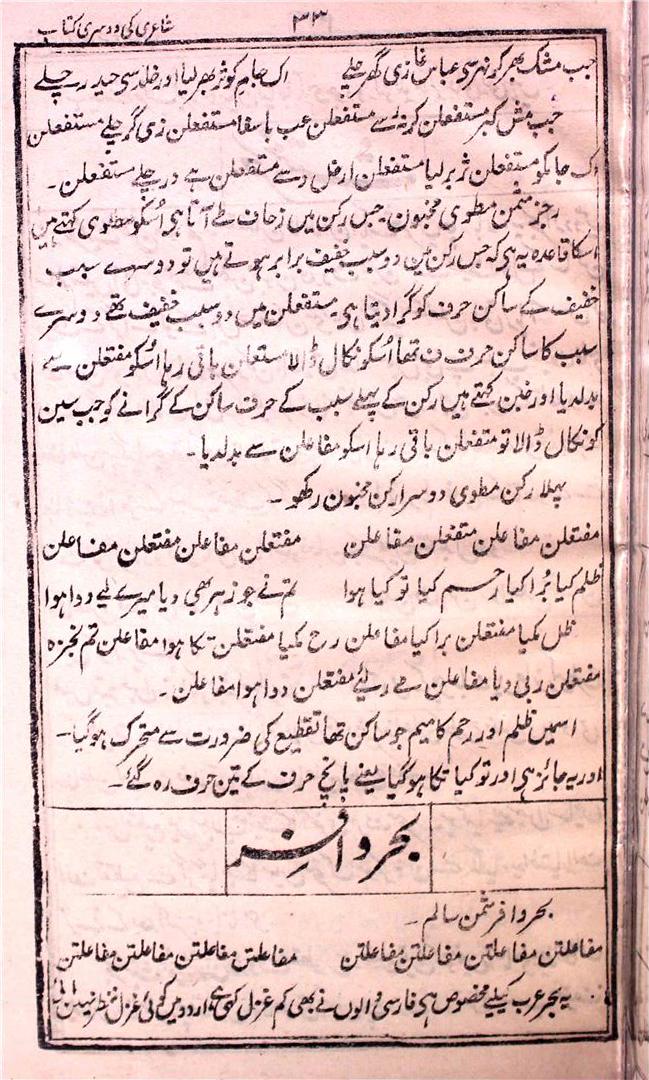 ۳۳ شاعری کی دوسری کتاب
جب مشک بھر کر نہر سی عباس غازی گھر چلے اک جام کوثر بھر لیا اور خلد سی حیدر چلے
جب مش کبر مستفعلن کر نہ سے مستفعلن عب باسغا مستفعلن زی گر چلے مستفعلن
اک جا کو مستفعلن ثر بر لیا مستفعلن ار خل دسے مستفعلن ہے در چلے مستفعلن ۔
رجز مثمن مطوی مخبون ۔ جس رکن میں زحاف طے آتا ہی اُسکو مطلوی کہتے ہیں
اسکا قاعدہ یہ ہی کہ جس رکن مین دو سبب خفیف برابر ہوتے ہیں تو دوسرے سبب
خفیف کے ساکن حرف کو گرا دیتا ہی ۔ مستفعلن میں دو سبب خفیف تھے دوسرے
سبب کا ساکن حرف ف تھا اُسکو نکال ڈالا مستعلن باقی رہا اسکو مفتعلن سے
بدلدیا اور خبن کہتے ہیں رکن کے پہلے سبب کے حرف ساکن کے گرانے کو جب سین
کو نکال ڈالا تو متفعلن باقی رہا اسکو مفاعلن سے بدلدیا ۔
پہلا رکن مطوی دوسرا رکن مخبون رکھو ۔
مفتعلن مفاعلن متفعلن مفاعلن مفتعلن مفاعلن مفتعلن مفاعلن
ظلم کیا بُرا کیا رحم کیا تو کیا ہوا تم نے جو زہر بھی دیا میرے لیے دوا ہوا
ظل کمیا مفتعلن برا کیا مفاعلن رح کمیا مفتعلن تکا ہوا مفاعلن تم نجزہ
مفتعلن ربی دیا مفاعلن مے رلیئے مفتعلن دوا ہوا مفاعلن ۔
اسمیں ظلم اور رحم کا میم جو ساکن تھا تقطیع کی ضرورت سے متحرک ہو گیا ۔
اور یہ جائز ہی اور تو کیا تکا ہو گیا یعنے پانچ حرف کے تین حرف رہ گئے ۔
بحر وافر
بحر وافر مثمن سالم ۔
مفاعلتن مفاعلتن مفاعلتن مفاعلتن مفاعلتن مفاعلتن مفاعلتن مفاعلتن
یہ بحر عرب کیلیے مخصوص ہی فارسی والوں نے بھی کم غزل کہی ہے اردو میں کوئی غزل نظر نہیں آئی